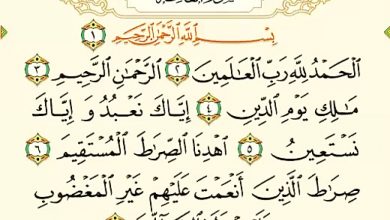 بِسْمِ اللَّهِ الرَّحْمَٰنِ الرَّحِيمِ ١
الْحَمْدُ لِلَّهِ رَبِّ الْعَالَمِينَ ٢ الرَّحْمَٰنِ الرَّحِيمِ ٣
مَالِكِ يَوْمِ الدِّينِ ٤ إِيَّاكَ نَعْبُدُ وَ إِيَّاكَ
نَسْتَعِينُ ٥ اهْدِنَا الصِّرَاطَ الْمُسْتَقِيمَ ٦
صِرَاطَ الَّذِينَ أَنْعَمْتَ عَلَيْهِمْ غَيْرِ الْمَغْضُوبِ